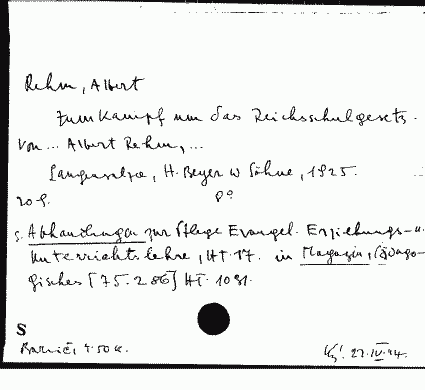 Rehm, Albert
Zum Kampf um das Reichsschulgesetz.
Von ... Albert Rehm, ...
Langensalza, H. Beyer u Söhne, 1925.
20 S. 8°
s. Abhandlungen zur Pflege Evangel. Erziehungs- u.
Unterrichtslehre, Ht. 17. in Magazin, Pädago-
gisches [75.286] Ht. 1031.
S
4.50 K. 27.IV.44.